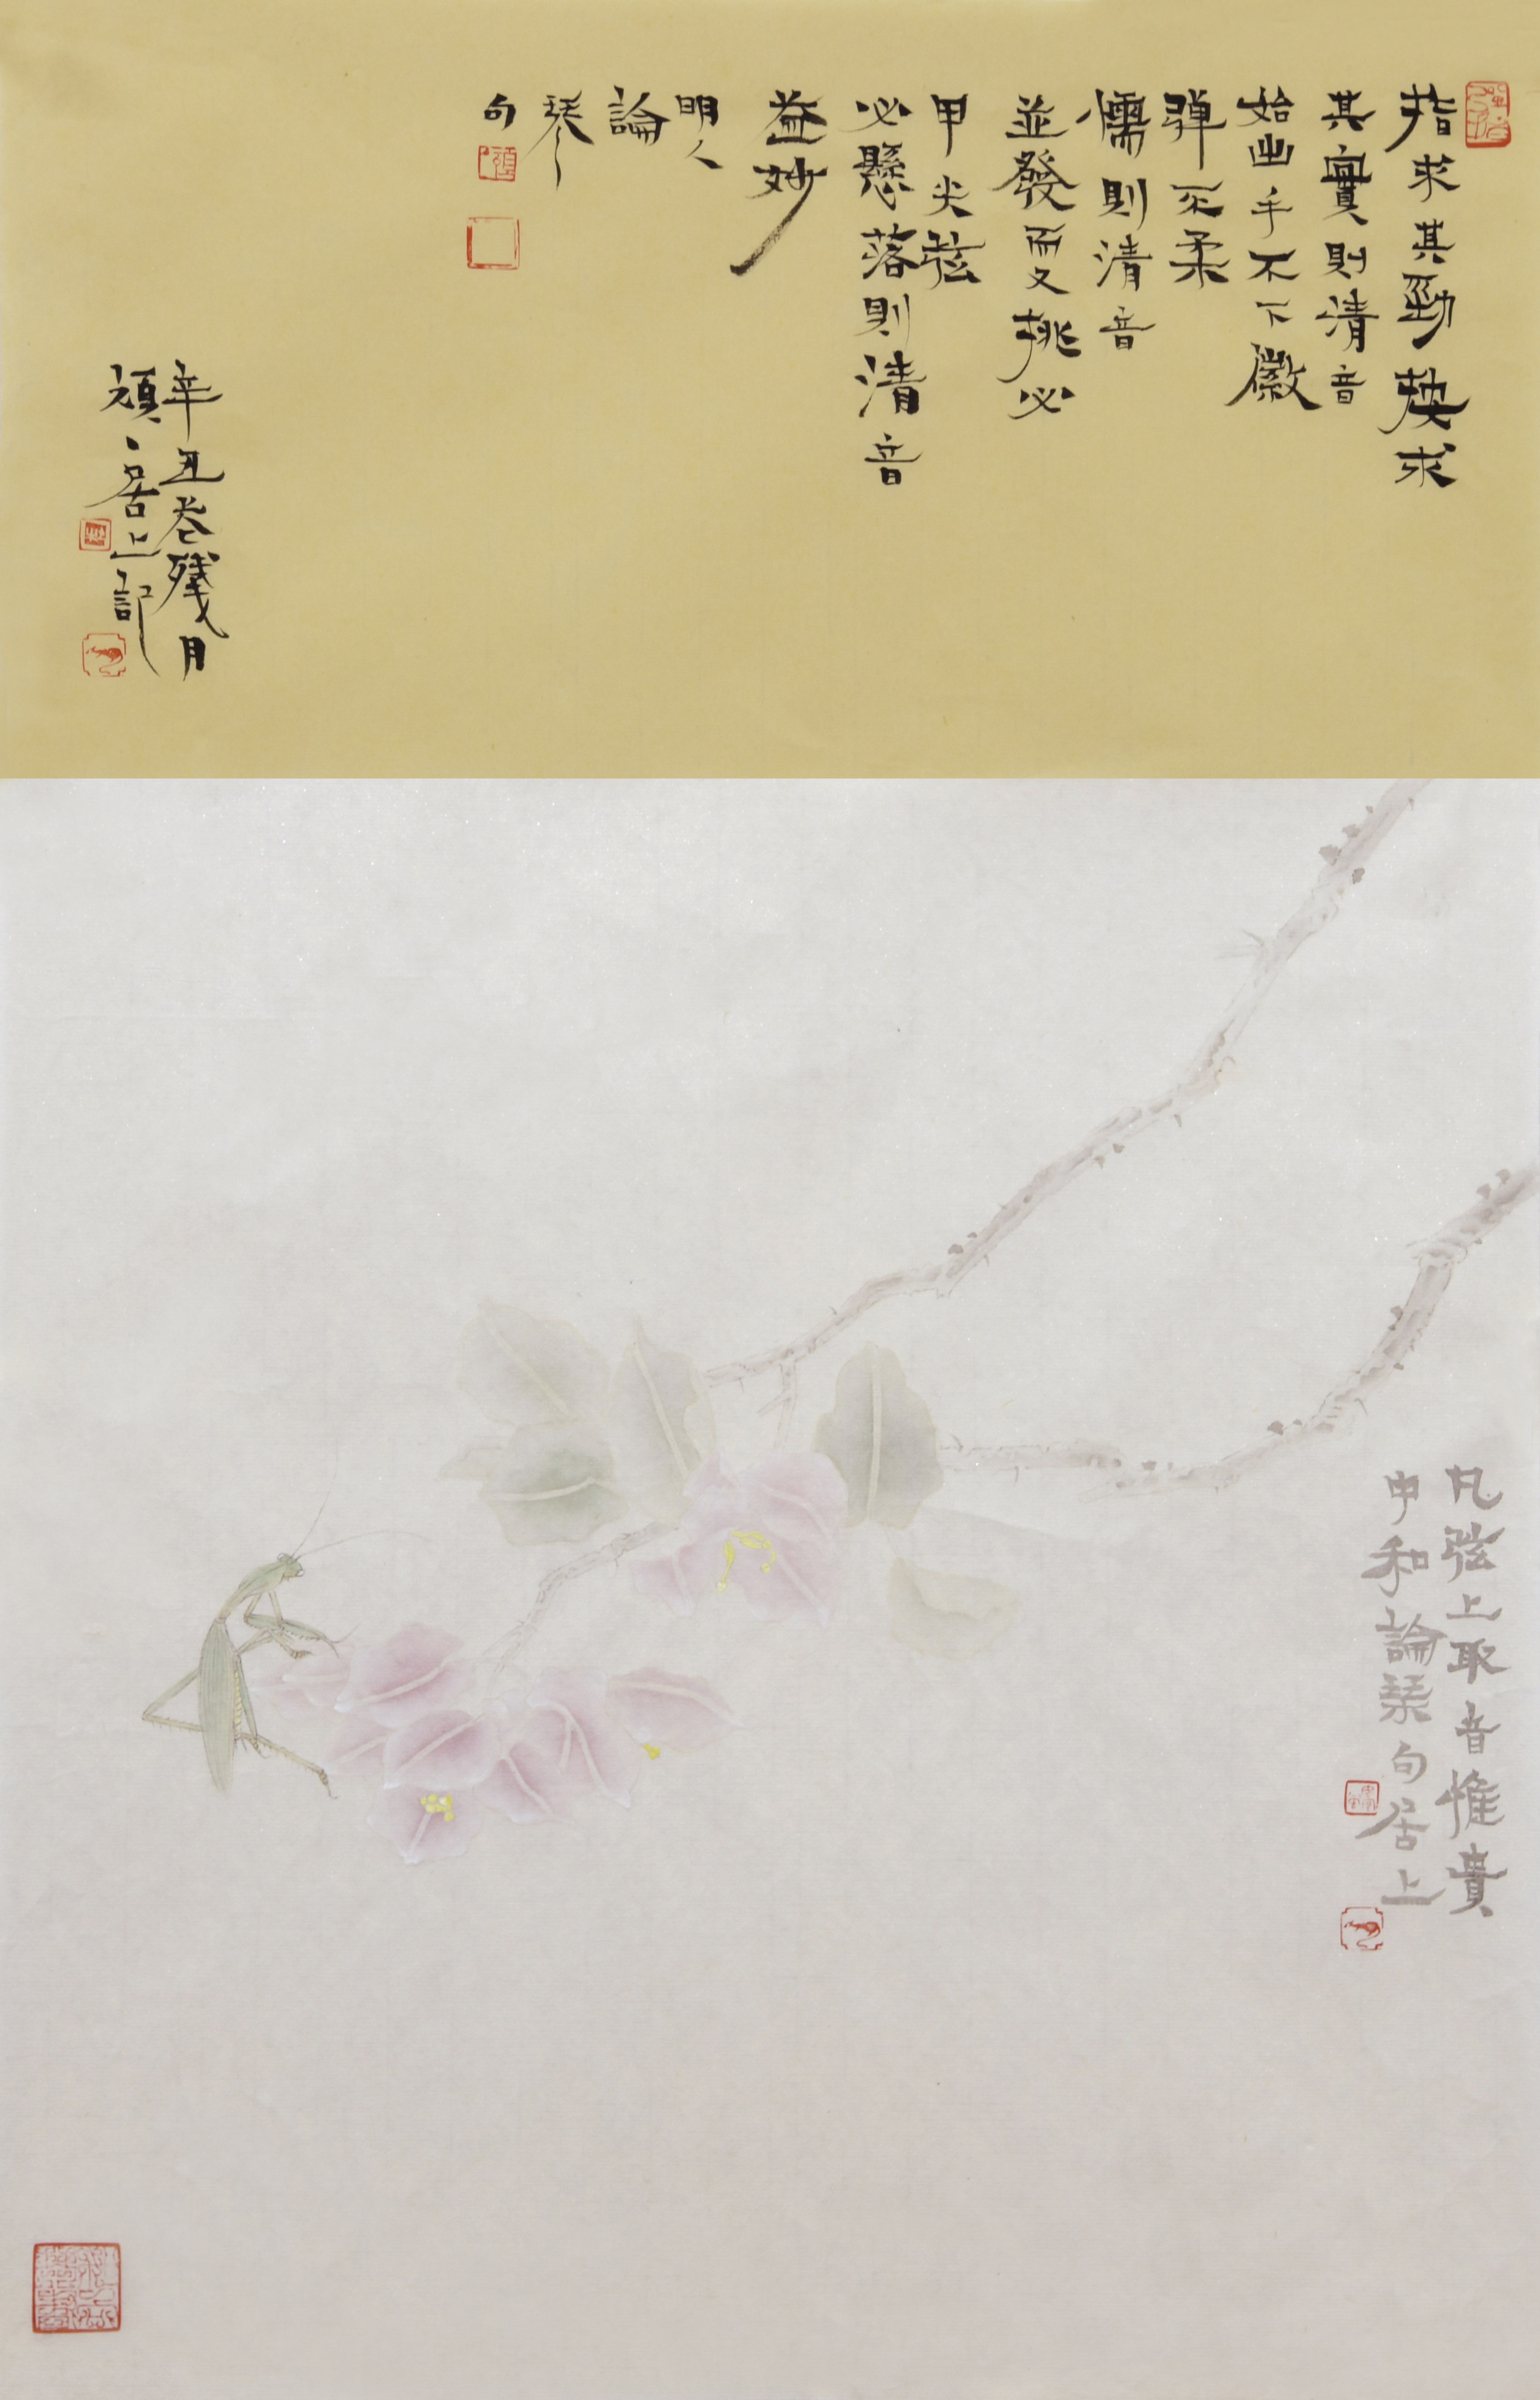 指求其勁按求
其實則清音
始出手不下徽
彈不柔
懦則清音
並發而又挑必
甲尖弦
必懸落則清音
益妙
明人
論
琴
句
辛丑春殘月
頑居上記
凡弦上取音惟貴
中和論琴句居上